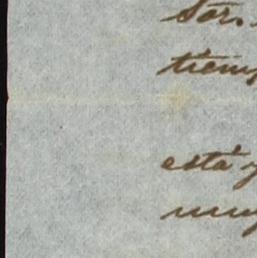 Sor.
tiem
está y
muy